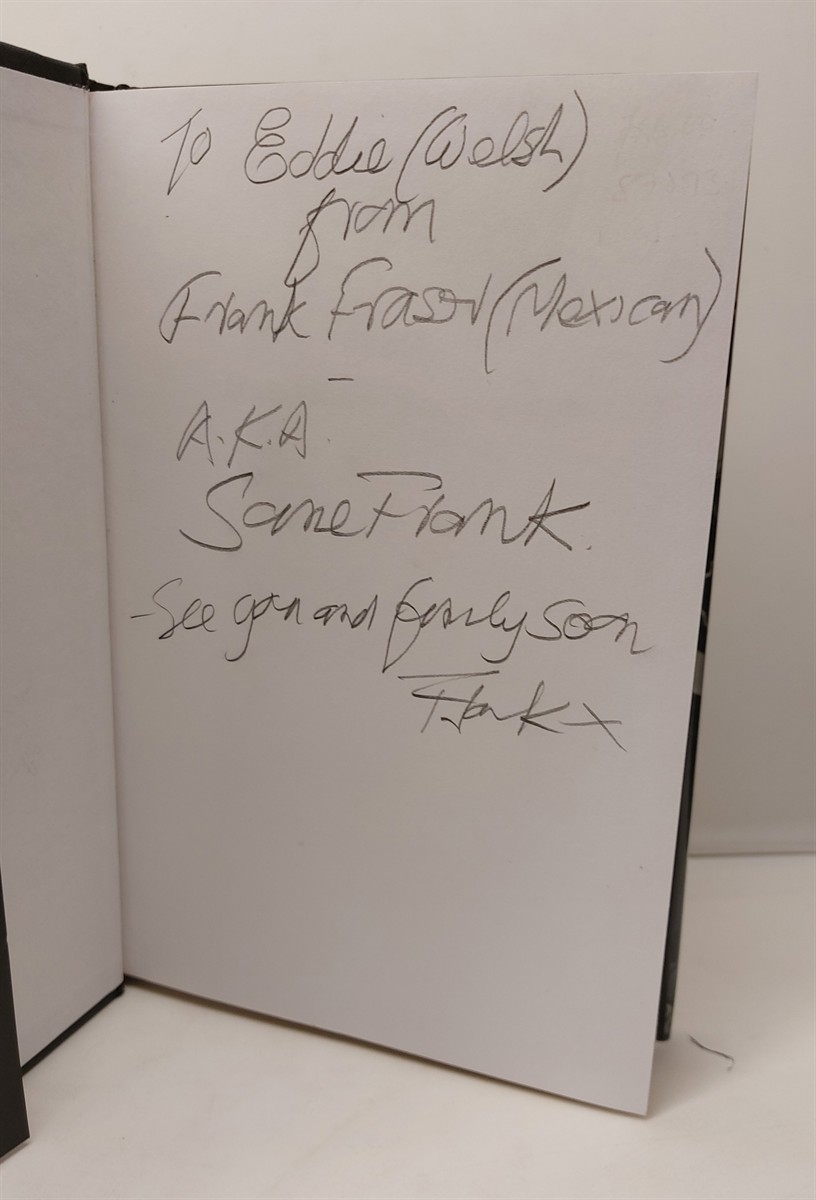 To Eddie (Welsh)
from
Frank Fraser (Mexican)
A.K.A.
Sane Frank.
-See you and family soon
Frank x